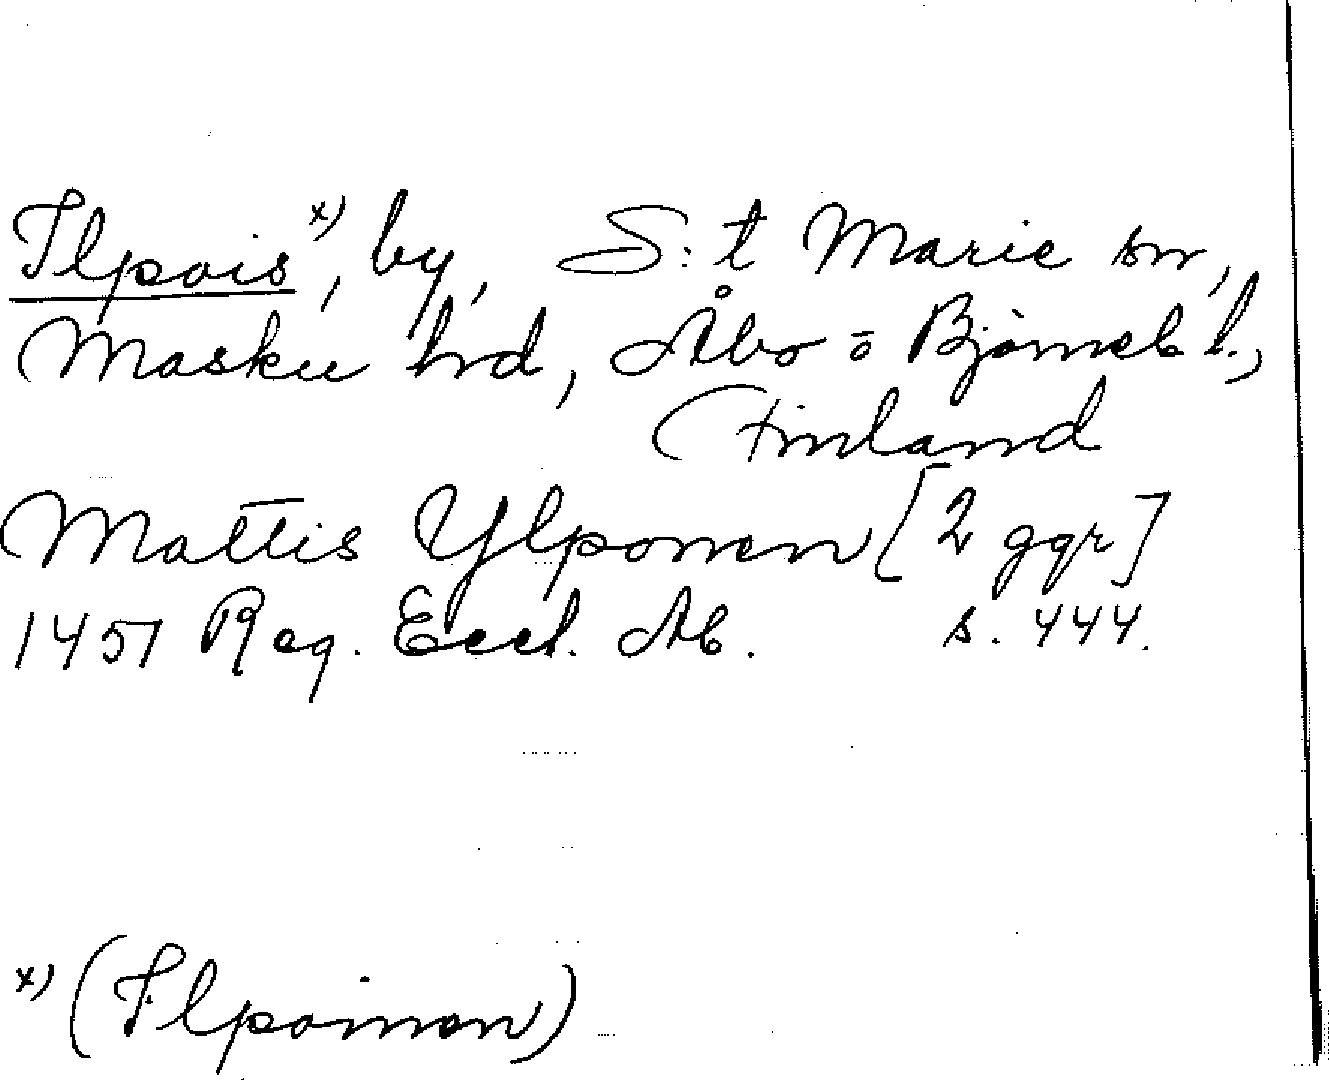 Ilpois x), by, S:t Marie sn,
Masku hrd, Åbo o Björneb l.,
Finland
Mattis Ylponen [2 ggr]
1451 Reg. Eccl. Ab. s. 444.
x) (Ilpoinen)